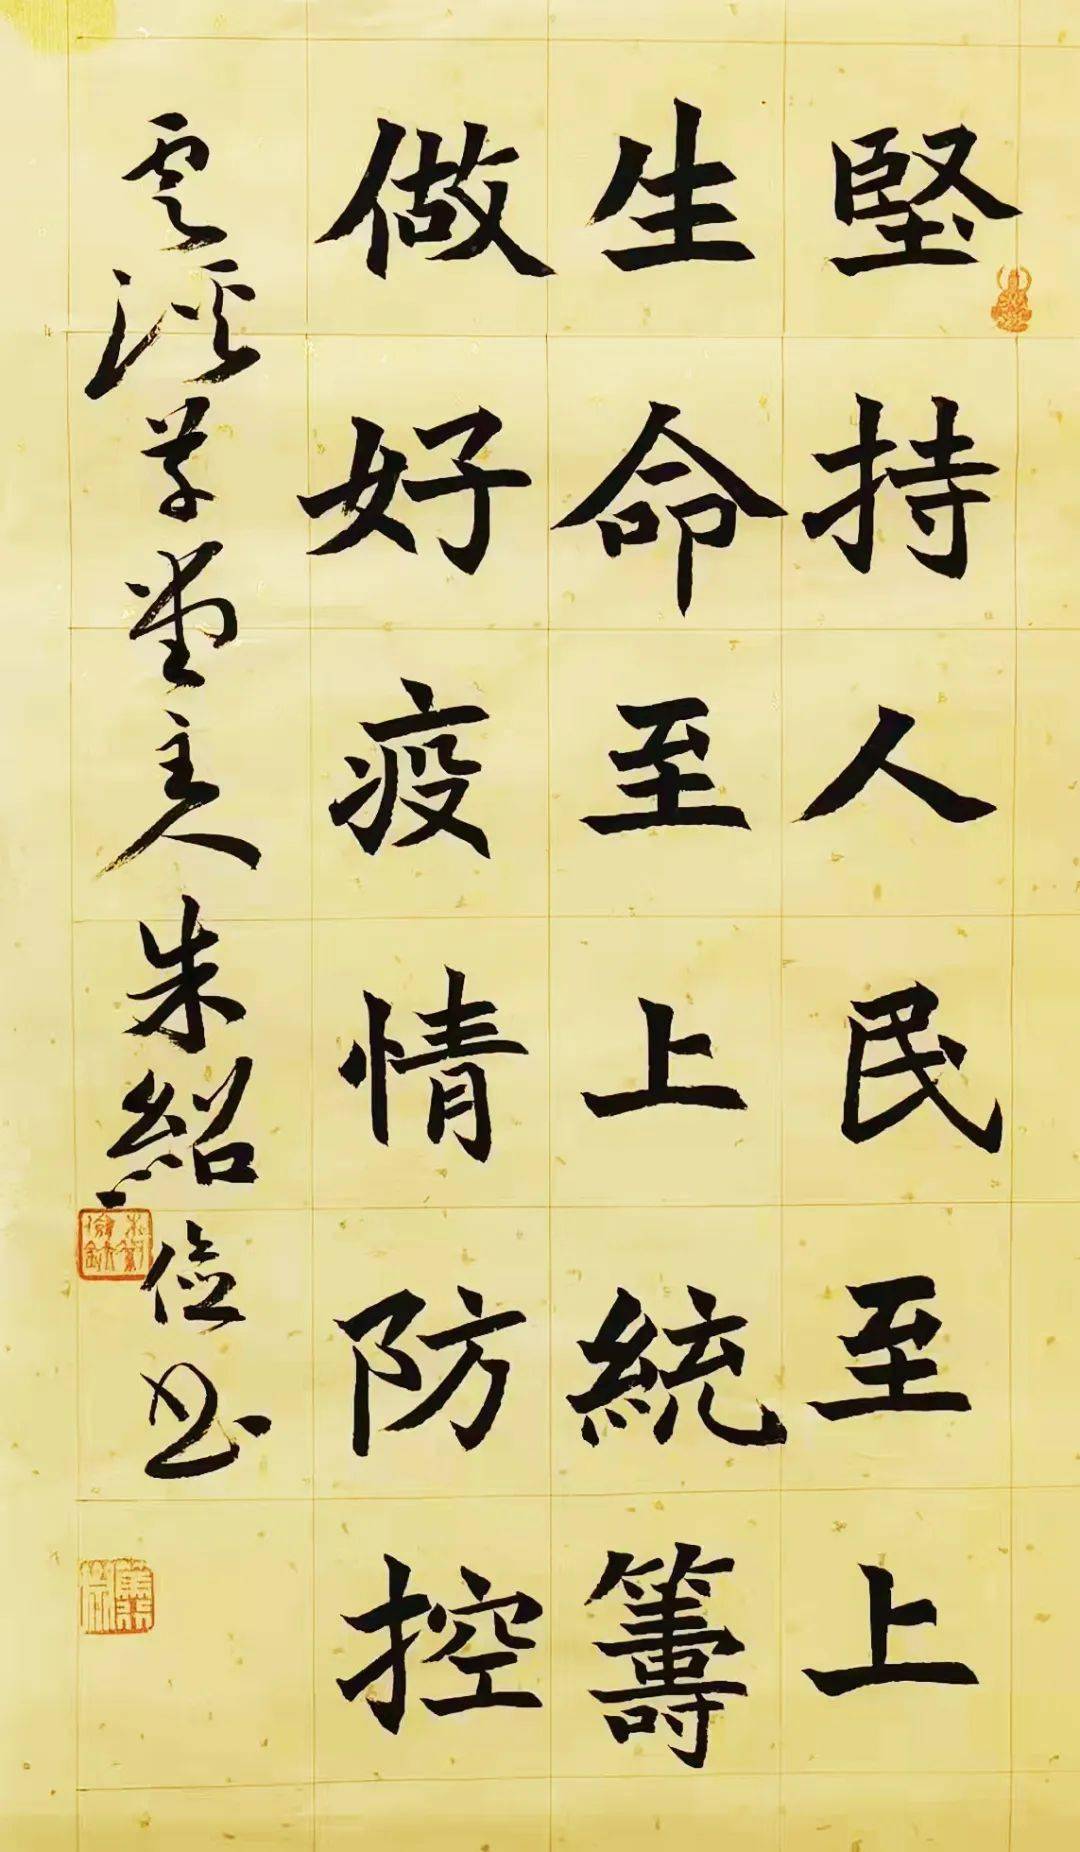 堅持人民至上
生命至上統籌
做好疫情防控
雲溪草堂主人朱紹儉書